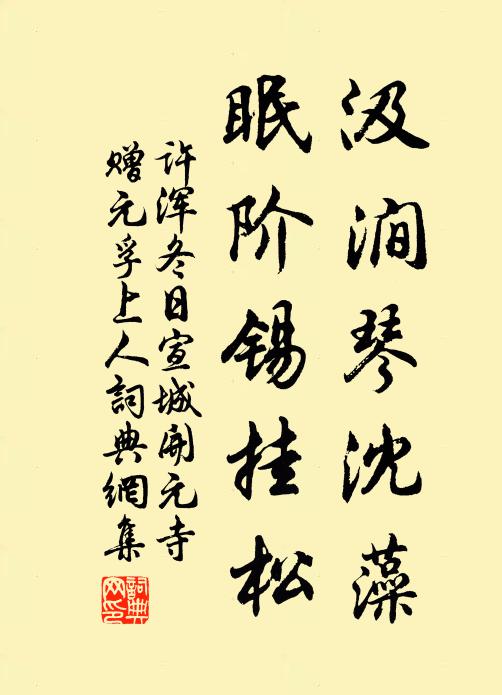 汲涧琴沈藻
眠阶锡挂松
许浑冬日宣城开元寺
赠元孚上人词典網集
詞典網印